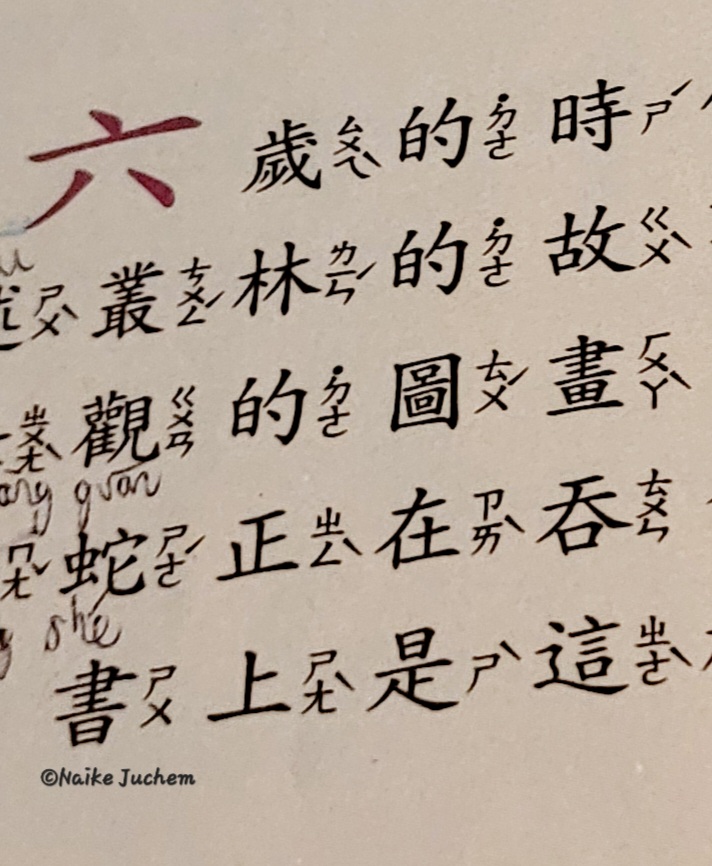 六歲ㄙㄨㄟˋ的˙ㄉㄜ時ㄕˊ
述ㄕㄨˋ叢ㄘㄨㄥˊ林ㄌㄧㄣˊ的˙ㄉㄜ故ㄍㄨˋ
ㄓㄨㄤˋ觀ㄍㄨㄢ的˙ㄉㄜ圖ㄊㄨˊ畫ㄏㄨㄚˋ
guan
蛇ㄕㄜˊ正ㄓㄥˋ在ㄗㄞˋ吞ㄊㄨㄣ
shé
書ㄕㄨ上ㄕㄤˋ是ㄕˋ這ㄓㄜˋ
©Naike Juchem